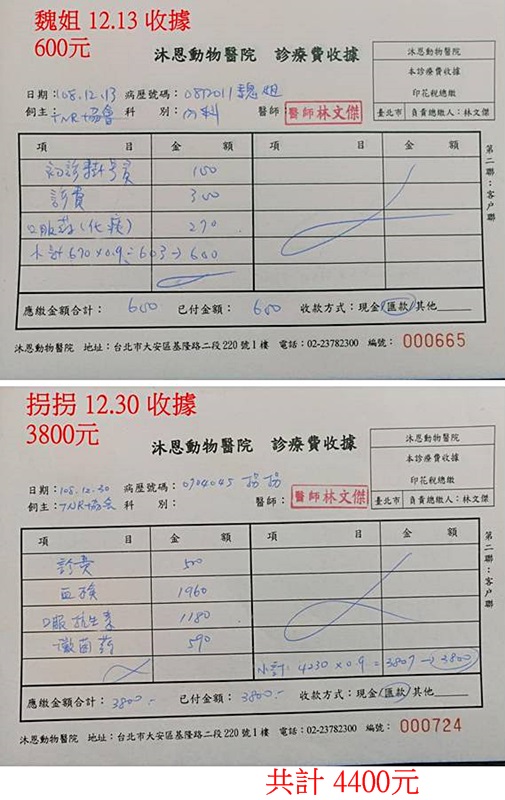 魏姐 12.13 收據
600元
沐恩動物醫院 診療費收據
沐恩動物醫院
本診療費收據
印花稅總繳
臺北市 負責總繳人：林文傑
日期：108.12.13 病歷號碼：0812011 魏姐
飼主：TNR協會 科 別：內科 醫師：醫師林文傑
項 目 金 額 項 目 金 額
初診掛號費 100
診費 300
口服藥(化痰) 270
小計 670×0.9=603→600
應繳金額合計：600 已付金額：600 收款方式：現金/匯款/其他
沐恩動物醫院 地址：台北市大安區基隆路二段220號1樓 電話：02-23782300 編號：000665
第二聯：客戶聯
拐拐 12.30 收據
3800元
沐恩動物醫院 診療費收據
沐恩動物醫院
本診療費收據
印花稅總繳
臺北市 負責總繳人：林文傑
日期：108.12.30 病歷號碼：0704045 拐拐
飼主：TNR協會 科 別： 醫師：醫師林文傑
項 目 金 額 項 目 金 額
診費 500
血檢 1960
口服抗生素 1180
黴菌藥 590
小計：4230×0.9=3807→3800
應繳金額合計：3800.- 已付金額：3800.- 收款方式：現金/匯款/其他
沐恩動物醫院 地址：台北市大安區基隆路二段220號1樓 電話：02-23782300 編號：000724
第二聯：客戶聯
共計 4400元